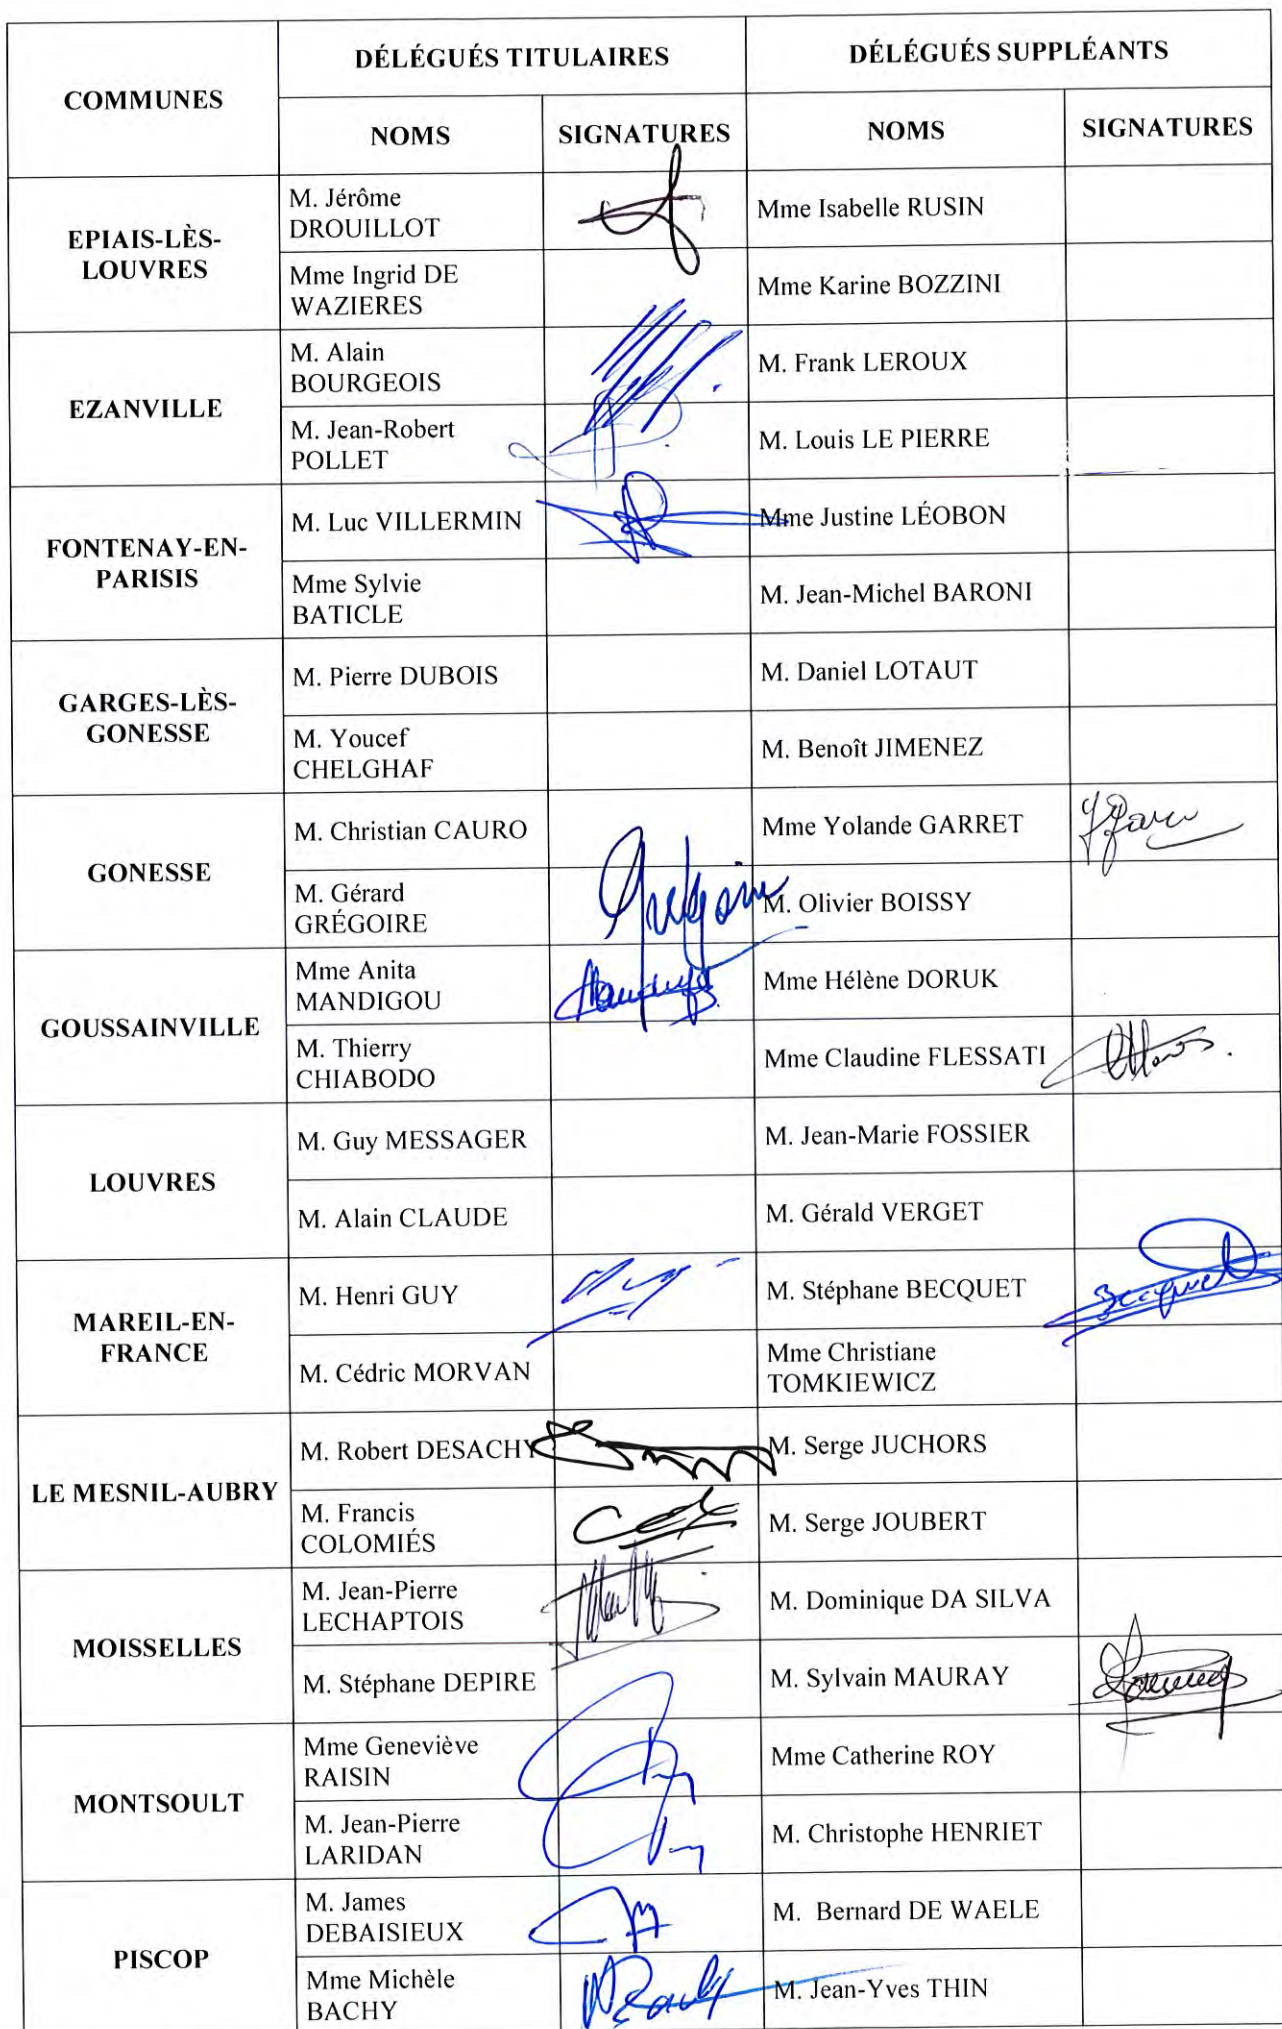 COMMUNES
DÉLÉGUÉS TITULAIRES
DÉLÉGUÉS SUPPLÉANTS
NOMS
SIGNATURES
NOMS
SIGNATURES
EPIAIS-LÈS-
LOUVRES
M. Jérôme
DROUILLOT
Mme Isabelle RUSIN
Mme Ingrid DE
WAZIERES
Mme Karine BOZZINI
EZANVILLE
M. Alain
BOURGEOIS
M. Frank LEROUX
M. Jean-Robert
POLLET
M. Louis LE PIERRE
FONTENAY-EN-
PARISIS
M. Luc VILLERMIN
Mme Justine LÉOBON
Mme Sylvie
BATICLE
M. Jean-Michel BARONI
GARGES-LÈS-
GONESSE
M. Pierre DUBOIS
M. Daniel LOTAUT
M. Youcef
CHELGHAF
M. Benoît JIMENEZ
GONESSE
M. Christian CAURO
Mme Yolande GARRET
M. Gérard
GRÉGOIRE
Grégoire
M. Olivier BOISSY
GOUSSAINVILLE
Mme Anita
MANDIGOU
Mme Hélène DORUK
M. Thierry
CHIABODO
Mme Claudine FLESSATI
LOUVRES
M. Guy MESSAGER
M. Jean-Marie FOSSIER
M. Alain CLAUDE
M. Gérald VERGET
MAREIL-EN-
FRANCE
M. Henri GUY
M. Stéphane BECQUET
Becquet
M. Cédric MORVAN
Mme Christiane
TOMKIEWICZ
LE MESNIL-AUBRY
M. Robert DESACHY
M. Serge JUCHORS
M. Francis
COLOMIÉS
M. Serge JOUBERT
MOISSELLES
M. Jean-Pierre
LECHAPTOIS
M. Dominique DA SILVA
M. Stéphane DEPIRE
M. Sylvain MAURAY
MONTSOULT
Mme Geneviève
RAISIN
Mme Catherine ROY
M. Jean-Pierre
LARIDAN
M. Christophe HENRIET
PISCOP
M. James
DEBAISIEUX
M. Bernard DE WAELE
Mme Michèle
BACHY
M. Jean-Yves THIN